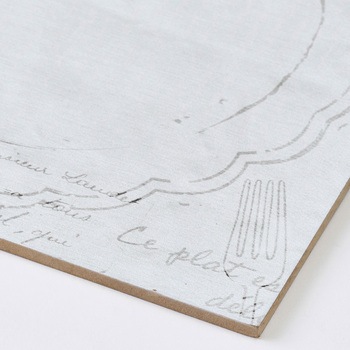 sieur Lauder
tous
il, qui
Ce plat es
dél